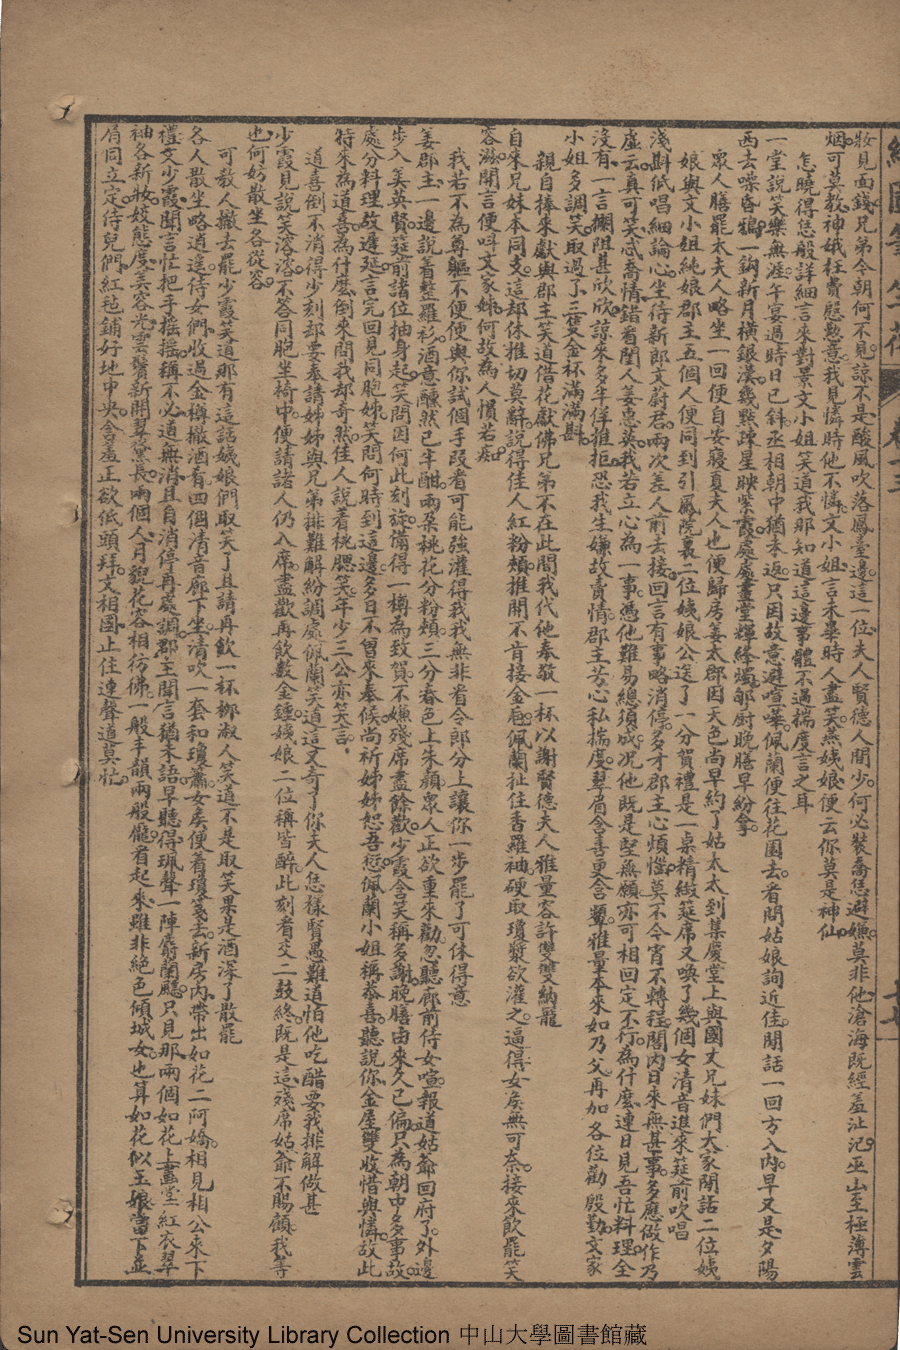 妝見面錢兄弟今朝何不見諒不是酸風吹落鳳臺邊這一位夫人賢德人間少何必裝喬恁避嫌莫非他滄海既經羞沚汜巫山至極薄雲
烟可莫教神娥枉費慇懃意我見憐時他不憐文小姐言未畢時人盡笑燕姨娘便云你莫是神仙
怎曉得恁般詳細言來對景文小姐笑道我那知道這邊事體不過揣度言之耳
一堂說笑樂無涯午宴過時日已斜丞相朝中猶未返只因故意避喧嘩佩蘭便往花園去看問姑娘詢近佳閒話一回方入內早又是夕陽
西去噪昏鴉一鈎新月橫銀漢幾點疎星映紫霞處處畫堂輝絳燭郇厨晚膳早紛拿
眾人膳罷太夫人略坐一回便自安寢夏夫人也便歸房姜太郡因天色尚早約了姑太太到集慶堂上與國丈兄妹們大家閒話二位姨
娘與文小姐純娘郡主五個人便同到引鳳院裏二位姨娘公送了一分賀禮是一桌精緻筵席又喚了幾個女清音進來筵前吹唱
淺斟低唱細論心坐待新郎文尉君兩次差人前去接回言有事略消停多才郡主心煩惱莫不今宵不轉程閣內日來無甚事多應做作乃
虛云真可笑忒喬情錯看閨人姜惠英我若立心為一事憑他難易總須成况他既是堅無願亦可相回定不行為什麼連日見吾忙料理全
沒有一言攔阻甚欣欣諒來多半佯推拒恐我生嫌故責情郡主芳心私揣度翠眉含喜更含顰雅量本來如乃父再加各位勸殷勤文家
小姐多調笑取過了三爵金杯滿滿斟
親自捧來獻與郡主笑道借花獻佛兄弟不在此間我代他奉敬一杯以謝賢德夫人雅量容許雙雙納寵
自來兄妹本同支這却休推切莫辭說得佳人紅粉頰推開不肯接金卮佩蘭扯住香羅袖硬取瓊漿欲灌之逼得女矦無可奈接來飲罷笑
容滋開言便呌文家姊何故為人慣若癡
我若不為尊軀不便便與你試個手段者可能強灌得我我無非看令郎分上讓你一步罷了可休得意
姜郡主一邊說着整羅衫酒意醺然已半酣兩朶桃花分粉頰三分春色上朱顏眾人正欲重來勸忽聽廊前侍女喧報道姑爺回府了外邊
步入美英賢筵前諸位抽身起笑問因何此刻旋備得一樽為致賀不嫌殘席盡餘歡少霞含笑稱多謝晚膳由來久已偏只為朝中多事故
處分料理故遲延言完回見同胞姊笑問何時到這邊多日不曾來奉候尚祈姊姊恕吾愆佩蘭小姐稱恭喜聽說你金屋雙收惜與憐故此
特來為道喜為什麼倒來問我却奇然佳人說着桃腮笑年少三公亦笑言
道喜倒不消得少刻却要奉請姊姊與兄弟排難解紛調處佩蘭笑道這又奇了你夫人恁樣賢愚難道怕他吃醋要我排解做甚
少霞見說笑溶溶不答同胞坐椅中便請諸人仍入席盡歡再飲數金鍾姨娘二位稱皆醉此刻看交二鼓終既是這殘席姑爺不賜顧我等
也何妨散坐各從容
可敎人撤去罷少霞笑道那有這話姨娘們取笑了且請再飲一杯柳淑人笑道不是取笑果是酒深了散罷
各人散坐略逍遥侍女們收過金樽撤酒肴四個清音廊下坐清吹一套和瓊簫女矦便着瓊箋去新房內帶出如花二阿嬌相見相公來下
禮文少霞聞言忙把手摇摇稱不必道無消且自消停再處調郡主聞言猶未語早聽得珮聲一陣麝蘭飄只見那兩個如花上畫堂紅衣翠
袖各新妝姣態度美容光雲鬢新開翠黛長兩個人月貌花容相彷彿一般手韻兩般龐看起來雖非絕色傾城女也算如花似玉娘當下並
肩同立定侍兒們紅毡鋪好地中央含羞正欲低頭拜文相國止住連聲道莫忙
卷十三
Sun Yat-Sen University Library Collection 中山大學圖書館藏